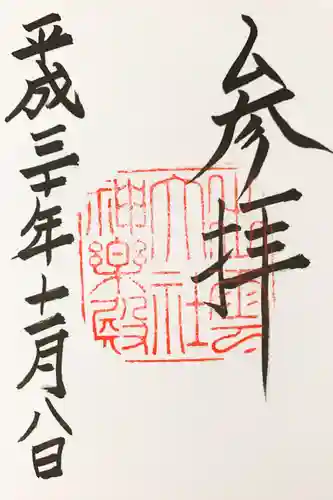 参拝
出雲大社神楽殿
平成三十年十一月八日